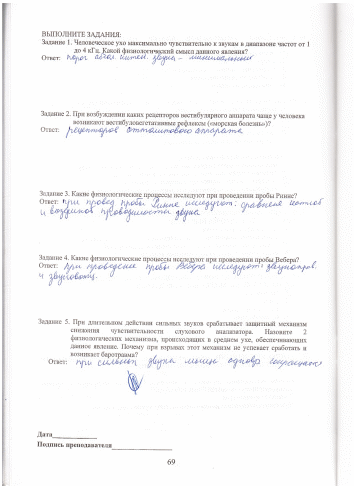 ВЫПОЛНИТЕ ЗАДАНИЯ:
Задание 1. Человеческое ухо максимально чувствительно к звукам в диапазоне частот от 1
до 4 кГц. Какой физиологический смысл данного явления?
Ответ: порог звука - минимальный
Задание 2. При возбуждении каких рецепторов вестибулярного аппарата чаще у человека
возникают вестибуловегетативные рефлексы («морская болезнь»)?
Ответ: рецепторов отолитового аппарата
Задание 3. Какие физиологические процессы исследуют при проведении пробы Ринне?
Ответ: при провед пробы Ринне исследуют: сравнение костной
и воздушной проводимости звука
Задание 4. Какие физиологические процессы исследуют при проведении пробы Вебера?
Ответ: при проведение пробы Вебера исследуют звукопров.
и
Задание 5. При длительном действии сильных звуков срабатывает защитный механизм
снижения чувствительности слухового анализатора. Назовите 2
физиологических механизма, происходящих в среднем ухе, обеспечивающих
данное явление. Почему при взрывах этот механизм не успевает сработать и
возникает баротравма?
Ответ: при сильных звука мышцы сокращаются
Дата
Подпись преподавателя
69